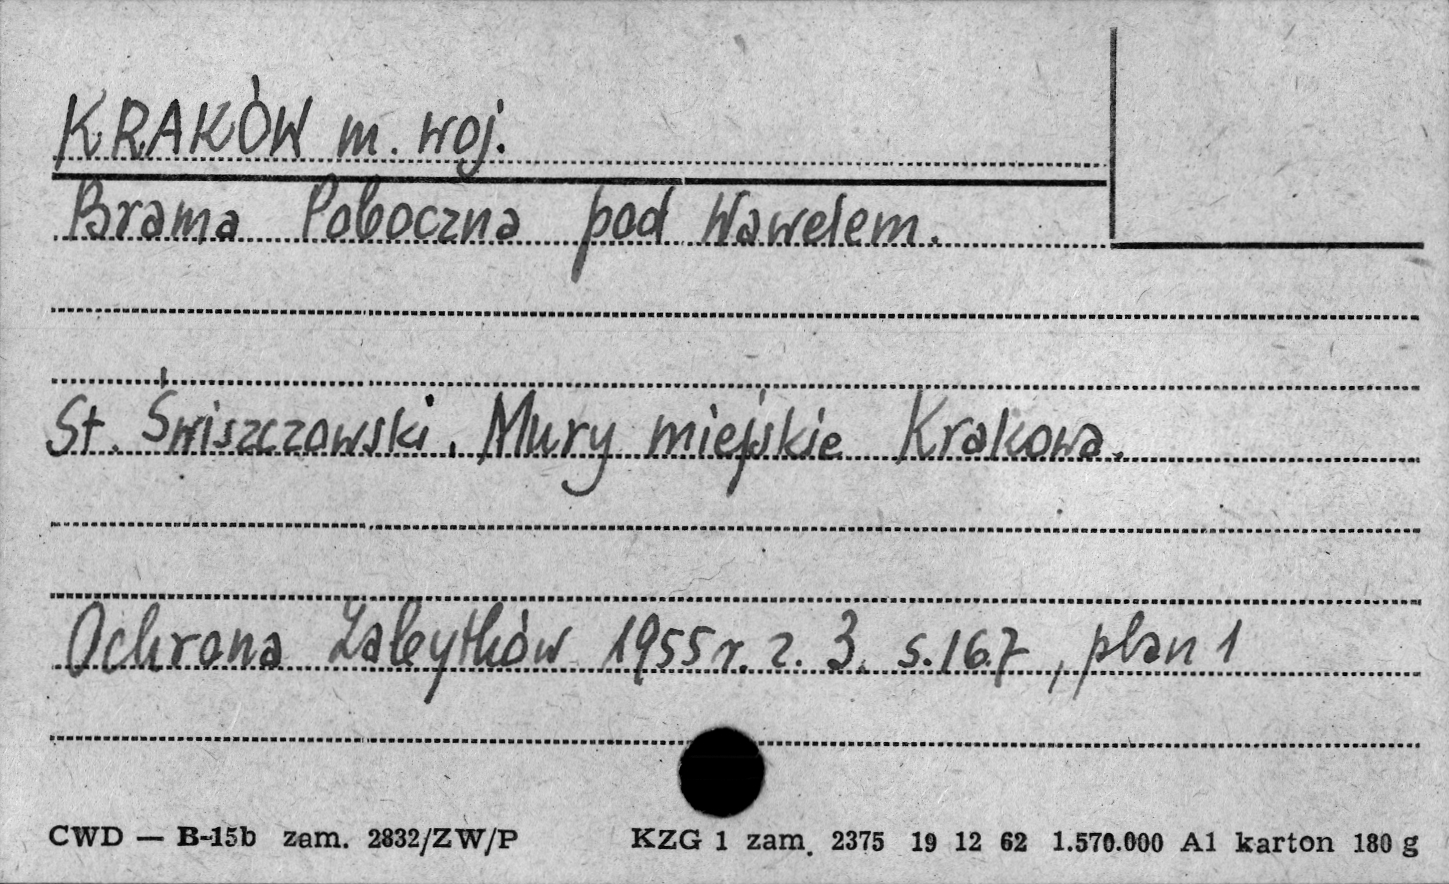 KRAKÓW m. woj.
Brama Poboczna pod Wawelem.
St. Świszczowski, Mury miejskie Krakowa.
Ochrona Zabytków 1955 r. z. 3. s. 167, plan 1
CWD — B-15b zam. 2832/ZW/P KZG 1 zam. 2375 19 12 62 1.570.000 A1 karton 180 g